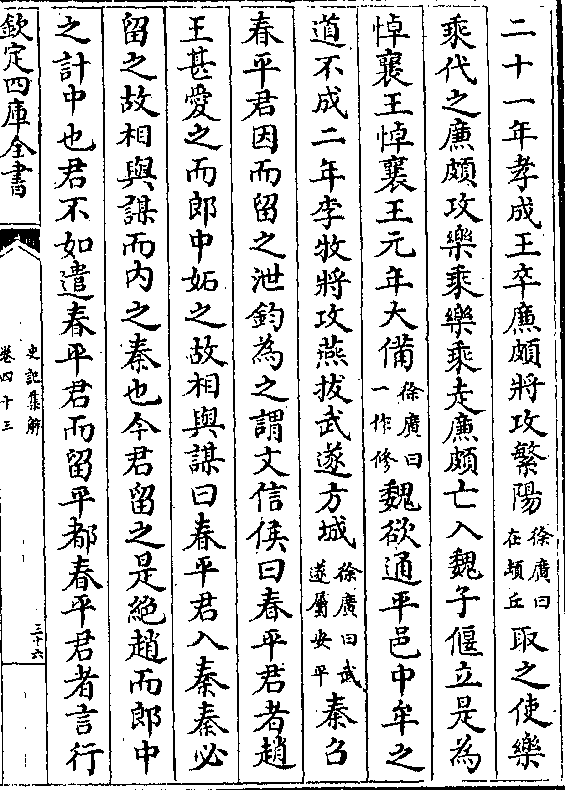 二十一年孝成王卒廉頗將攻繁陽徐廣曰在頓丘取之使樂
乘代之廉頗攻樂乘樂乘走廉頗亡入魏子偃立是為
悼襄王悼襄王元年大備徐廣曰一作修魏欲通平邑中牟之
道不成二年李牧將攻燕拔武遂方城徐廣曰武遂屬安平秦召
春平君因而留之泄鈞為之謂文信侯曰春平君者趙
王甚愛之而郎中妬之故相與謀曰春平君入秦秦必
留之故相與謀而内之秦也今君留之是絶趙而郎中
之計中也君不如遣春平君而留平都春平君者言行
欽定四庫全書
史記集解
卷四十三
三十六